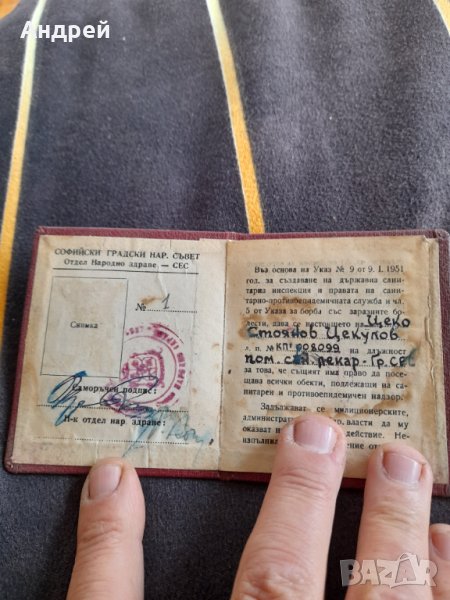 Андрей
СОФИЙСКИ ГРАДСКИ НАР. СЪВЕТ
Отдел Народно здраве — СЕС
№ 1
Снимка
Саморъчен подпис:
Н-к отдел нар. здраве:
Въз основа на Указ № 9 от 9. I. 1951
год. за създаване на държавна сани-
тарна инспекция и правата на сани-
тарно-противоепидемичната служба и чл.
5 от Указа за борба със заразните бо-
лести, дава се настоящето на Цеко
Стоянов Цекулов
л. п. № на длъжност
пом. сан. лекар - Гр. СЕС
за това, че същият има право да посе-
щава всички обекти, подлежащи на са-
нитарен и противоепидемичен надзор.
Задължават се милиционерските,
административни власти да му
оказват действие. Не-
BAZAR